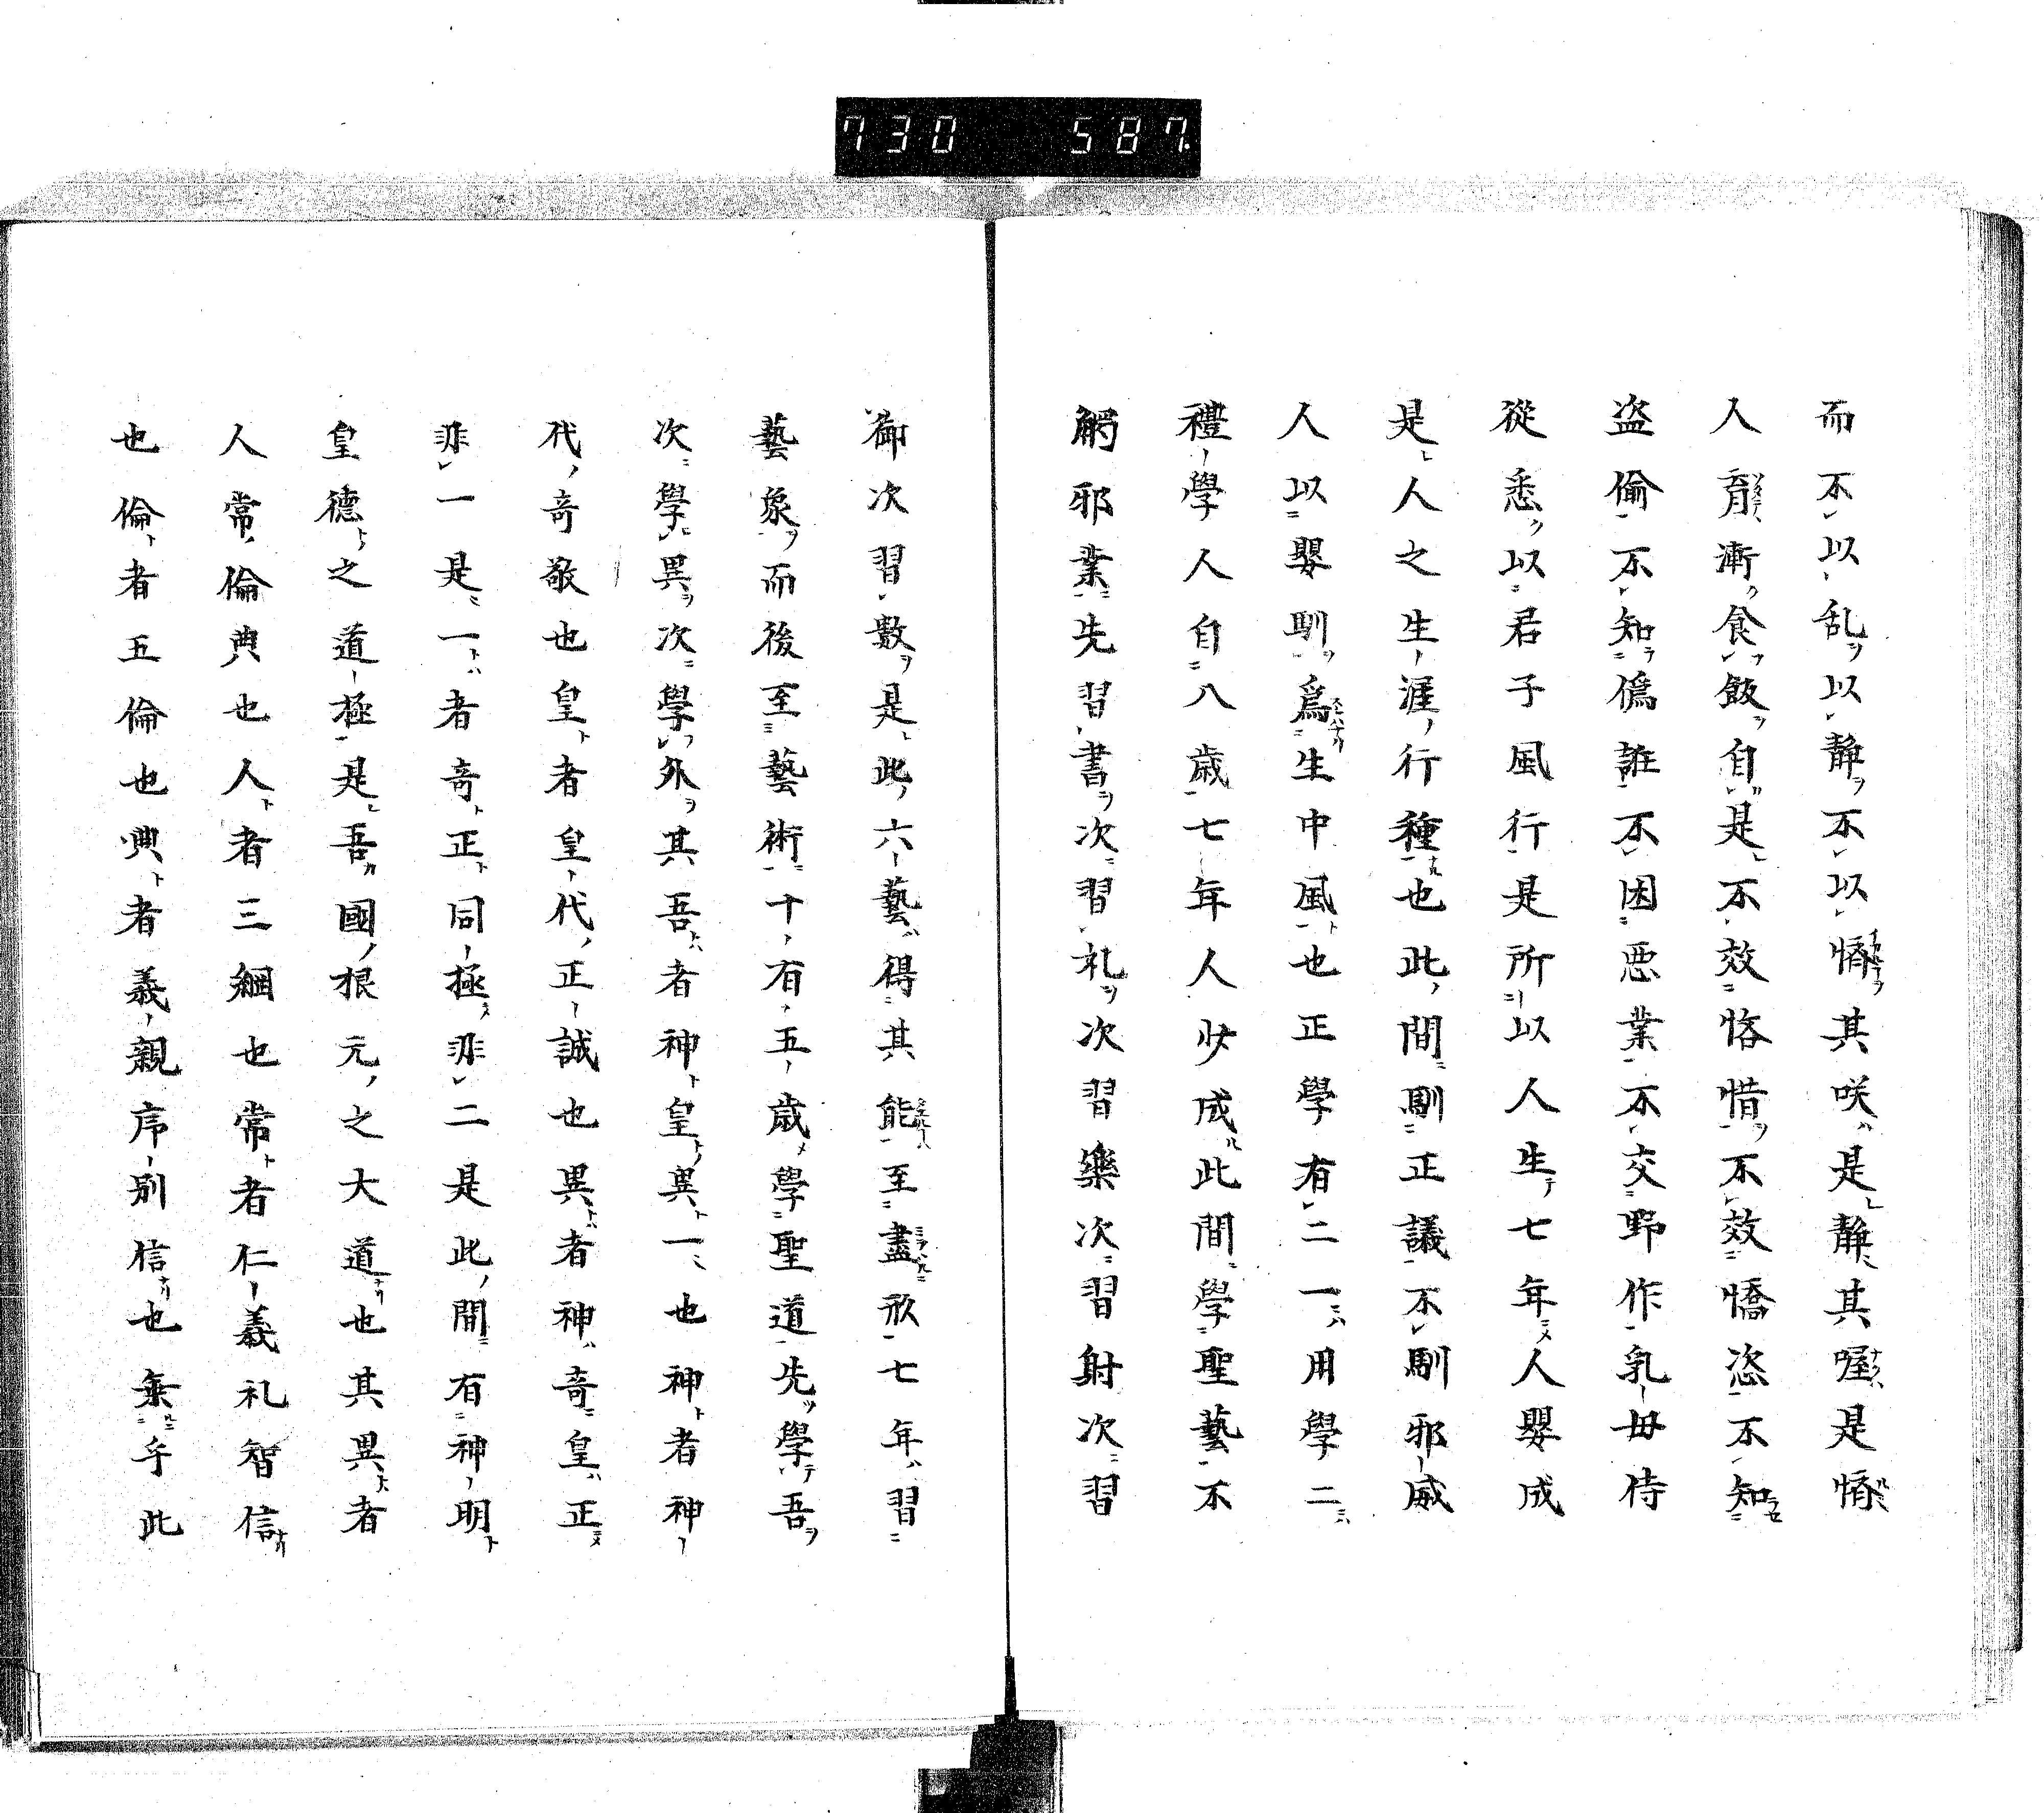 730 587
而不以乱以靜不以㥽其咲是靜其喔是㥽
人育漸食飯自是不效悋惜不效憍恣不知
盗偷不知僞誑不因悪業不交野作乳母侍
從悉以君子風行是所以人生七年人嬰成
是人之生涯行種也此間馴正議不馴邪威
人以嬰馴爲生中風也正學有二一用學二
禮學人自八歳七年人少成此間學聖藝不
觸邪業先習書次習礼次習樂次習射次習
御次習數是此六藝得其能至盡祘七年習
藝象而後至藝術十有五歳學聖道先學吾
次學異次學外其吾者神皇異一也神者神
代奇敬也皇者皇代正誠也異者神奇皇正
非一是一者奇正同極非二是此間有神明
皇德之道極是吾國根元之大道也其異者
人常倫典也人者三綱也常者仁義礼智信
也倫者五倫也典者義親序別信也無乎此